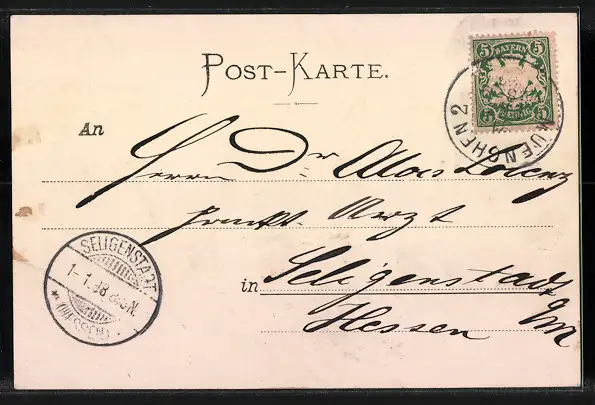 POST-KARTE.
5 BAYERN 5
5 PFENNIG 5
MUENCHEN 2
An
Herrn Dr. Alois Lorenz
prakt. Arzt
in Seligenstadt
a/M
Hessen
SELIGENSTADT
1-1.98
(HESSEN)